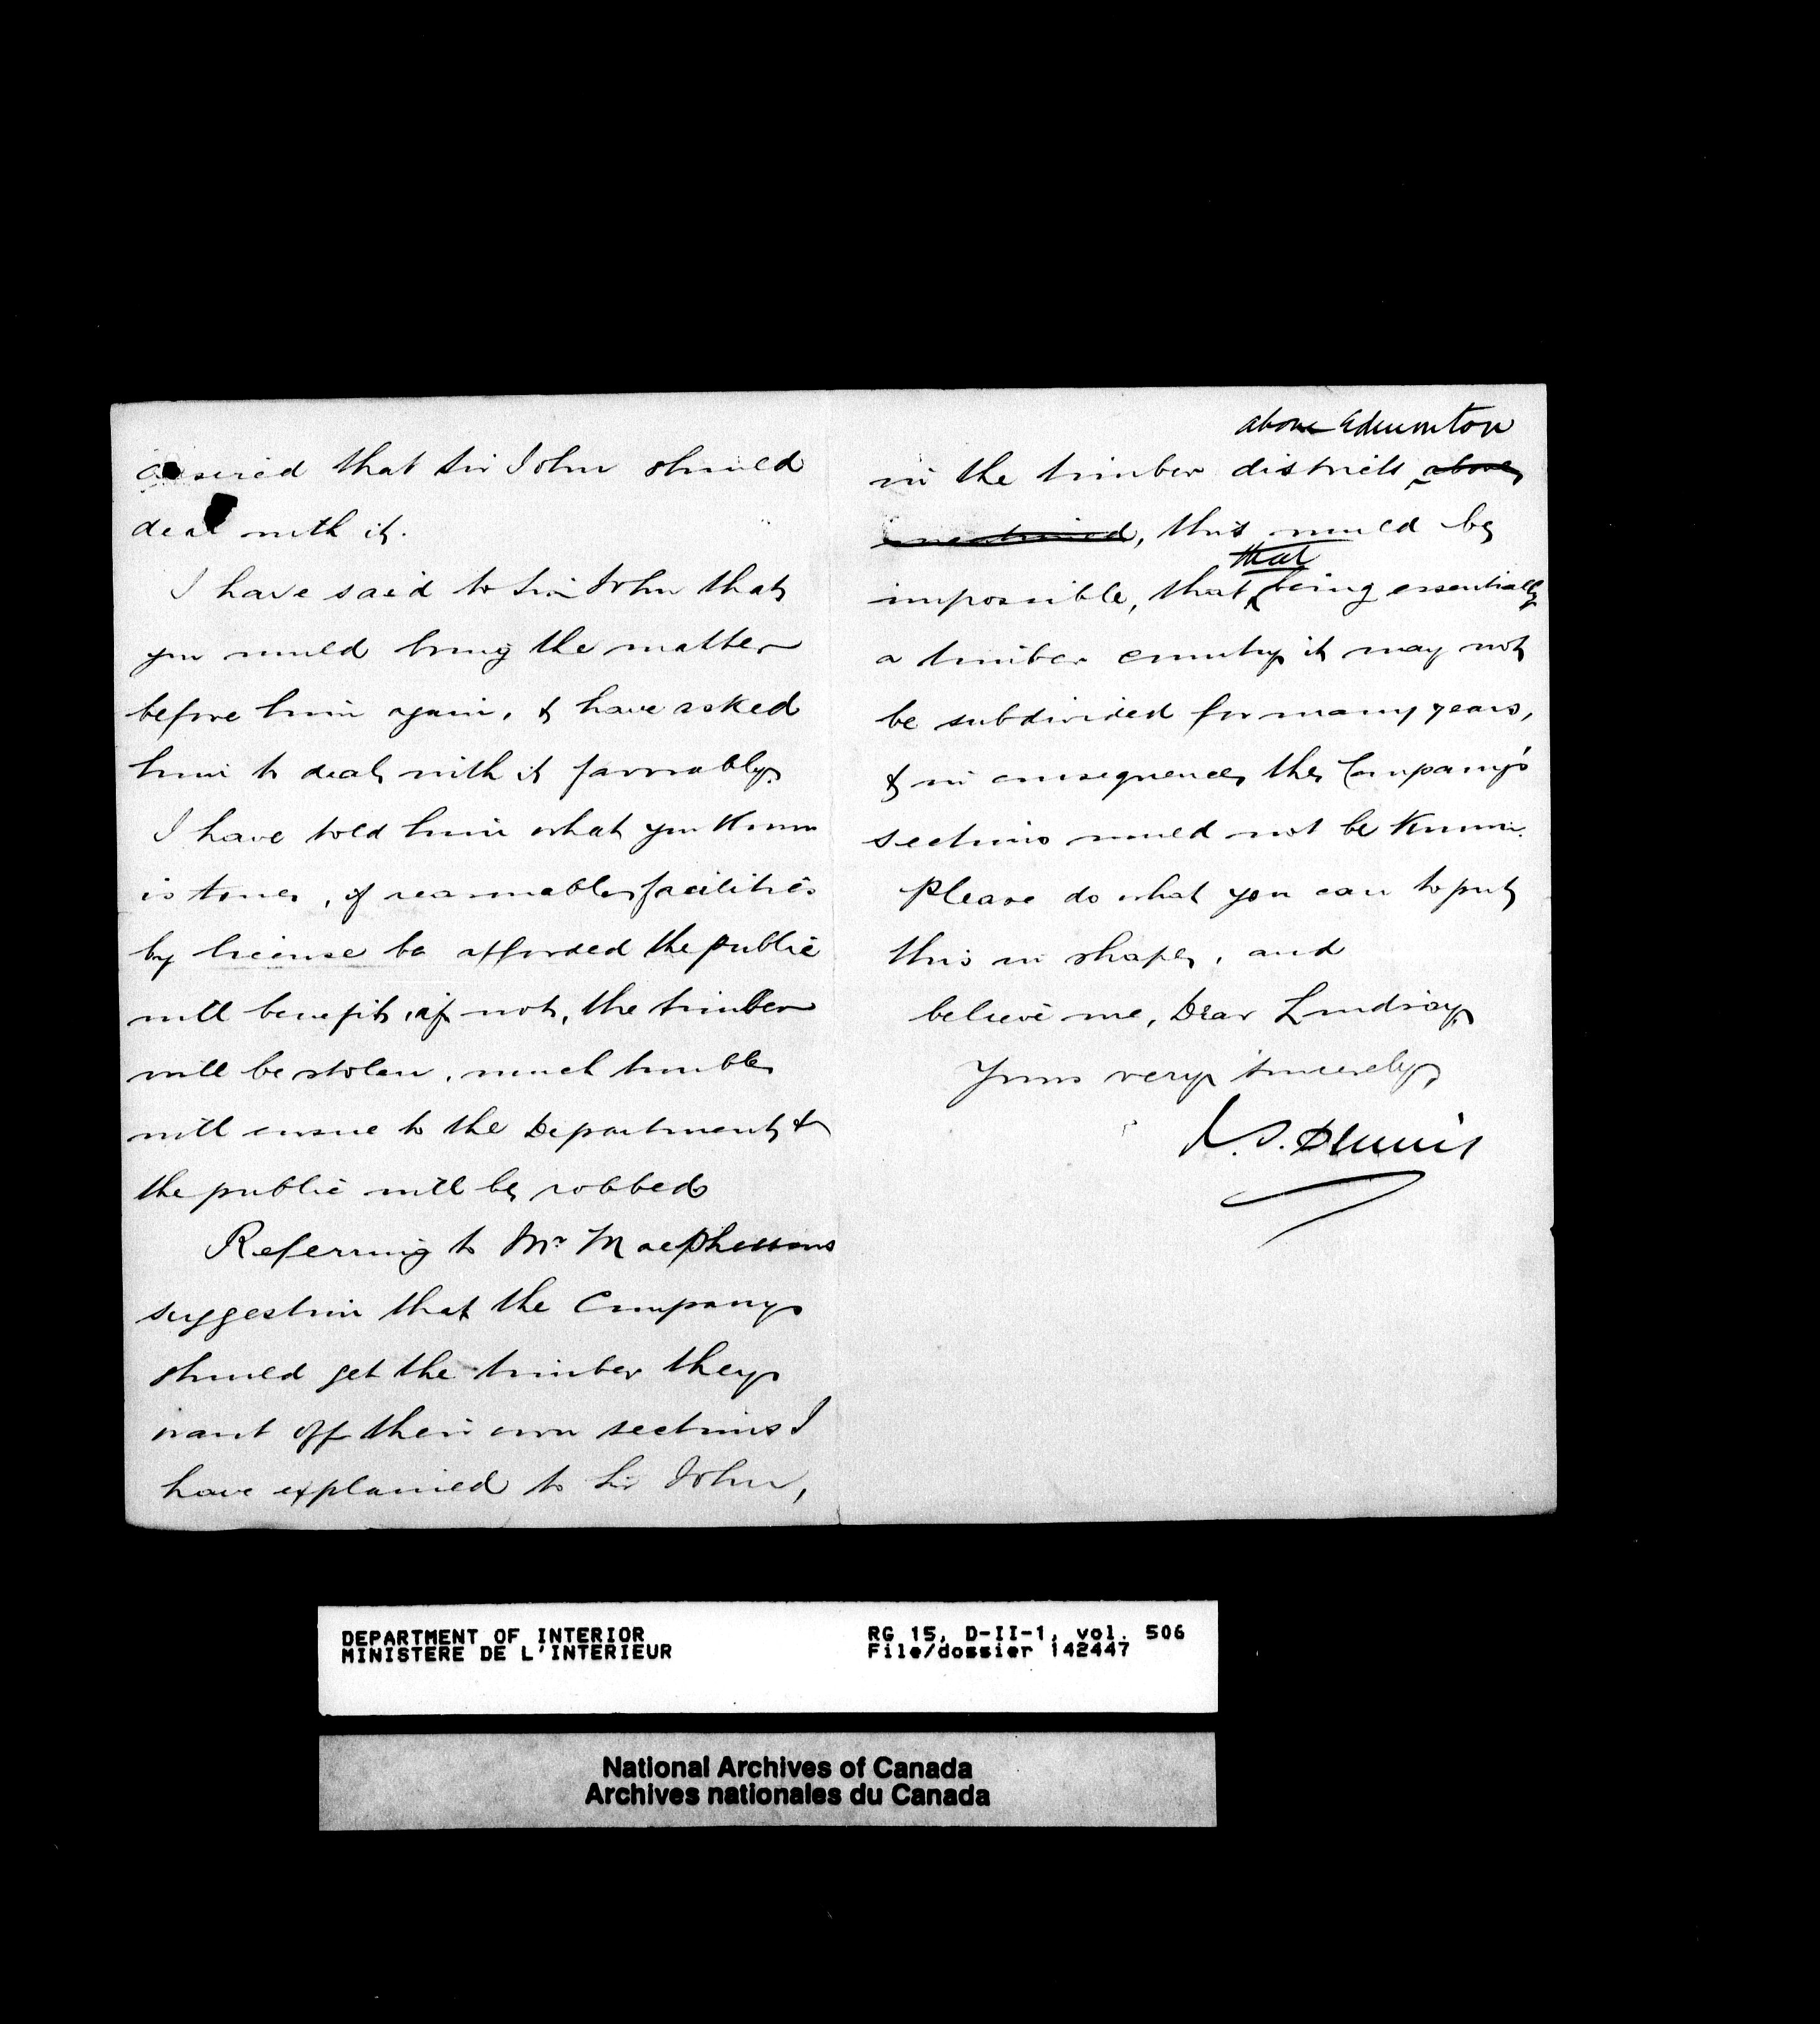 desired that Sir John should
deal with it.
I have said to Sir John that
you would bring the matter
before him again, & have asked
him to deal with it favorably.
I have told him what you know
is true, if reasonable facilities
by license be afforded the public
will benefit, if not, the timber
will be stolen, much trouble
will ensue to the Department, &
the public will be robbed
Referring to Mr Macphersons
suggestion that the Company
should get the timber they
want off their own sections I
have explained to Sir John,
above Edmonton
in the timber districts above
mentioned, this would be
that
impossible, that being essentially
a timber country it may not
be subdivided for many years,
& in consequence, the Company's
sections would not be known.
Please do what you can to put
this in shape, and
believe me, Dear Lindsay,
Yours very sincerely,
J. S. Dennis
DEPARTMENT OF INTERIOR
MINISTERE DE L'INTERIEUR
RG 15, D-II-1, vol. 506
File/dossier 142447
National Archives of Canada
Archives nationales du Canada